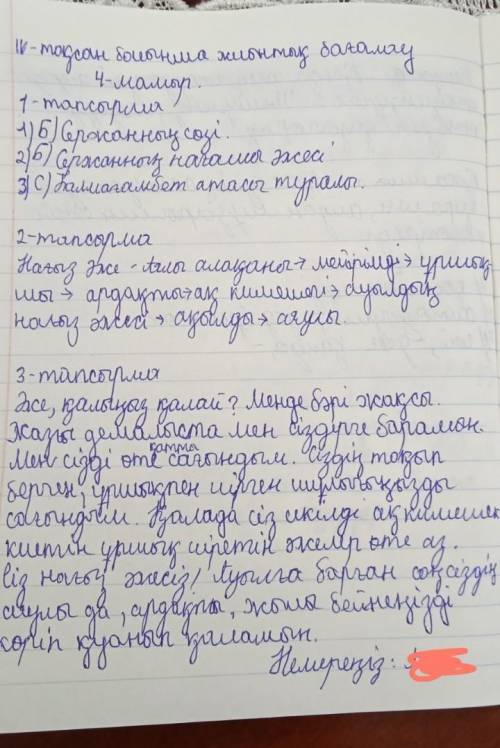 IV-тоқсан бойынша жиынтық бағалау
4-мамыр.
1-тапсырма
1) Б) Сержанның сөзі.
2) Б) Сержанның нағашы әжесі
3) С) Қалмағамбет атасы туралы.
2-тапсырма
Нағыз әже - Аялы алақаны→ мейірімді→ ұршық-
шы→ ардақты→ақ кимешегі→ ауылдың
нағыз әжесі→ ақылды→ аяулы.
3-тапсырма
Әже, қалыңыз қалай? Менде бәрі жақсы.
Жазғы демалыста мен сіздерге барамын.
Мен сізді өте қатты сағындым. Сіздің тоқып
берген, ұршықпен иірген шұлығыңызды
сағындым. Қалада сіз секілді ақ кимешек
киетін ұршық иіретін әжелер өте аз.
Сіз нағыз әжесіз! Ауылға барған соң сіздің
аяулы да, ардақты, жылы бейнеңізді
көріп қуанып қаламын.
Немереңіз: